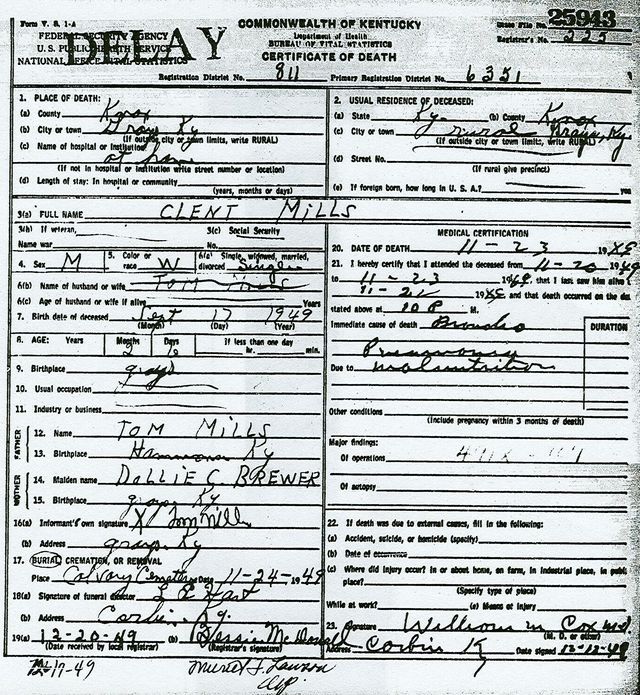 Form V. S. 1-A
FEDERAL SECURITY AGENCY
U. S. PUBLIC HEALTH SERVICE
NATIONAL OFFICE VITAL STATISTICS
DELAY
COMMONWEALTH OF KENTUCKY
Department of Health
BUREAU OF VITAL STATISTICS
CERTIFICATE OF DEATH
State File No. 25943
Registrar's No. 225
Registration District No. 811 Primary Registration District No. 6351
1. PLACE OF DEATH:
(a) County Knox
(b) City or town Grays Ky
(If outside city or town limits, write RURAL)
(c) Name of hospital or institution at home
(If not in hospital or institution write street number or location)
(d) Length of stay: In hospital or community
(years, months or days)
2. USUAL RESIDENCE OF DECEASED:
(a) State Ky. (b) County Knox
(c) City or town rural Grays, Ky
(If outside city or town limits, write RURAL)
(d) Street No.
(If rural give precinct)
(e) If foreign born, how long in U. S. A.? yes
3(a) FULL NAME CLENT MILLS
3(b) If veteran, Name war
3(c) Social Security No.
4. Sex M
5. Color or race W
6(a) Single, widowed, married, divorced Single
6(b) Name of husband or wife TOM Mills
6(c) Age of husband or wife if alive Years
7. Birth date of deceased Sept 17 1949
(Month) (Day) (Year)
8. AGE: Years Months 2 Days 6 If less than one day hr. min.
9. Birthplace grays
10. Usual occupation
11. Industry or business
FATHER
12. Name TOM MILLS
13. Birthplace Ky
MOTHER
14. Maiden name DOLLIE C BREWER
15. Birthplace grays Ky
16(a) Informant's own signature X Tom Mills
(b) Address grays Ky
17. BURIAL, CREMATION, OR REMOVAL
Place Calvary Cemetery Date 11-24-1949
18(a) Signature of funeral director Hart
(b) Address Corbin Ky.
19(a) 12-20-49 (b) Bessie McDonald
(Date received by local registrar) (Registrar's signature)
MEDICAL CERTIFICATION
20. DATE OF DEATH 11-23 1949
21. I hereby certify that I attended the deceased from 11-20 1949
to 11-23 1949, that I last saw him alive
19 and that death occurred on the da
stated above at 10 P M.
Immediate cause of death Broncho
DURATION
Pneumonia
Due to malnutrition
Other conditions
(Include pregnancy within 3 months of death)
Major findings:
Of operations
Of autopsy
22. If death was due to external causes, fill in the following:
(a) Accident, suicide, or homicide (specify)
(b) Date of occurrence
(c) Where did injury occur? in or about home, on farm, in industrial place, in publ
place?
(Specify type of place)
While at work? (e) Means of injury
23. Signature William M Cox MD.
(M. D. or other)
Address Corbin K Date signed 12-12-49
12-17-49 Muriel F. Lawson